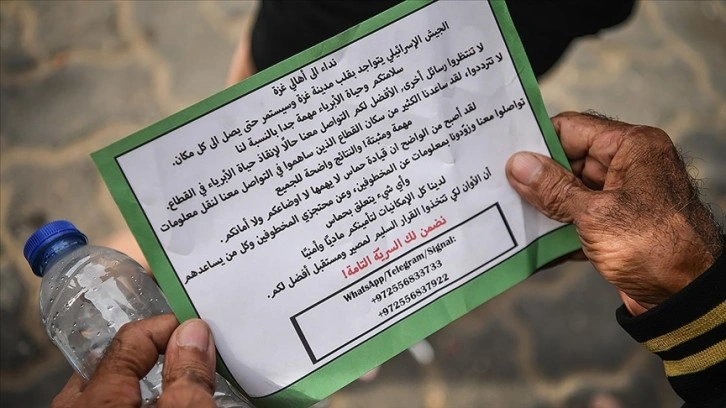 نداء الى أهالي غزة
الجيش الإسرائيلي يتواجد بقلب مدينة غزة وسيستمر حتى يصل الى كل مكان.
سلامتكم وحياة الأبرياء مهمة جدا بالنسبة لنا
لا تنتظروا رسائل أخرى، الأفضل لكم التواصل معنا حالًا لإنقاذ حياة الأبرياء في القطاع.
لا تترددوا، لقد ساعدنا الكثير من سكان القطاع الذين ساهموا في التواصل معنا لنقل معلومات
مهمة ومثبتة، والنتائج واضحة للجميع
لقد أصبح من الواضح ان قيادة حماس لا يهمها لا اوضاعكم ولا أمانكم.
تواصلوا معنا وزودونا بمعلومات عن المخطوفين، وعن محتجزي المخطوفين وكل من يساعدهم
وأي شيء يتعلق بحماس
لدينا كل الإمكانيات لتأمينكم ماديًا وأمنيًا
آن الأوان لكي تتخذوا القرار السليم لمصير ومستقبل أفضل لكم.
نضمن لك السريّة التامة!
WhatsApp/Telegram/Signal:
+972556833733
+972556837922